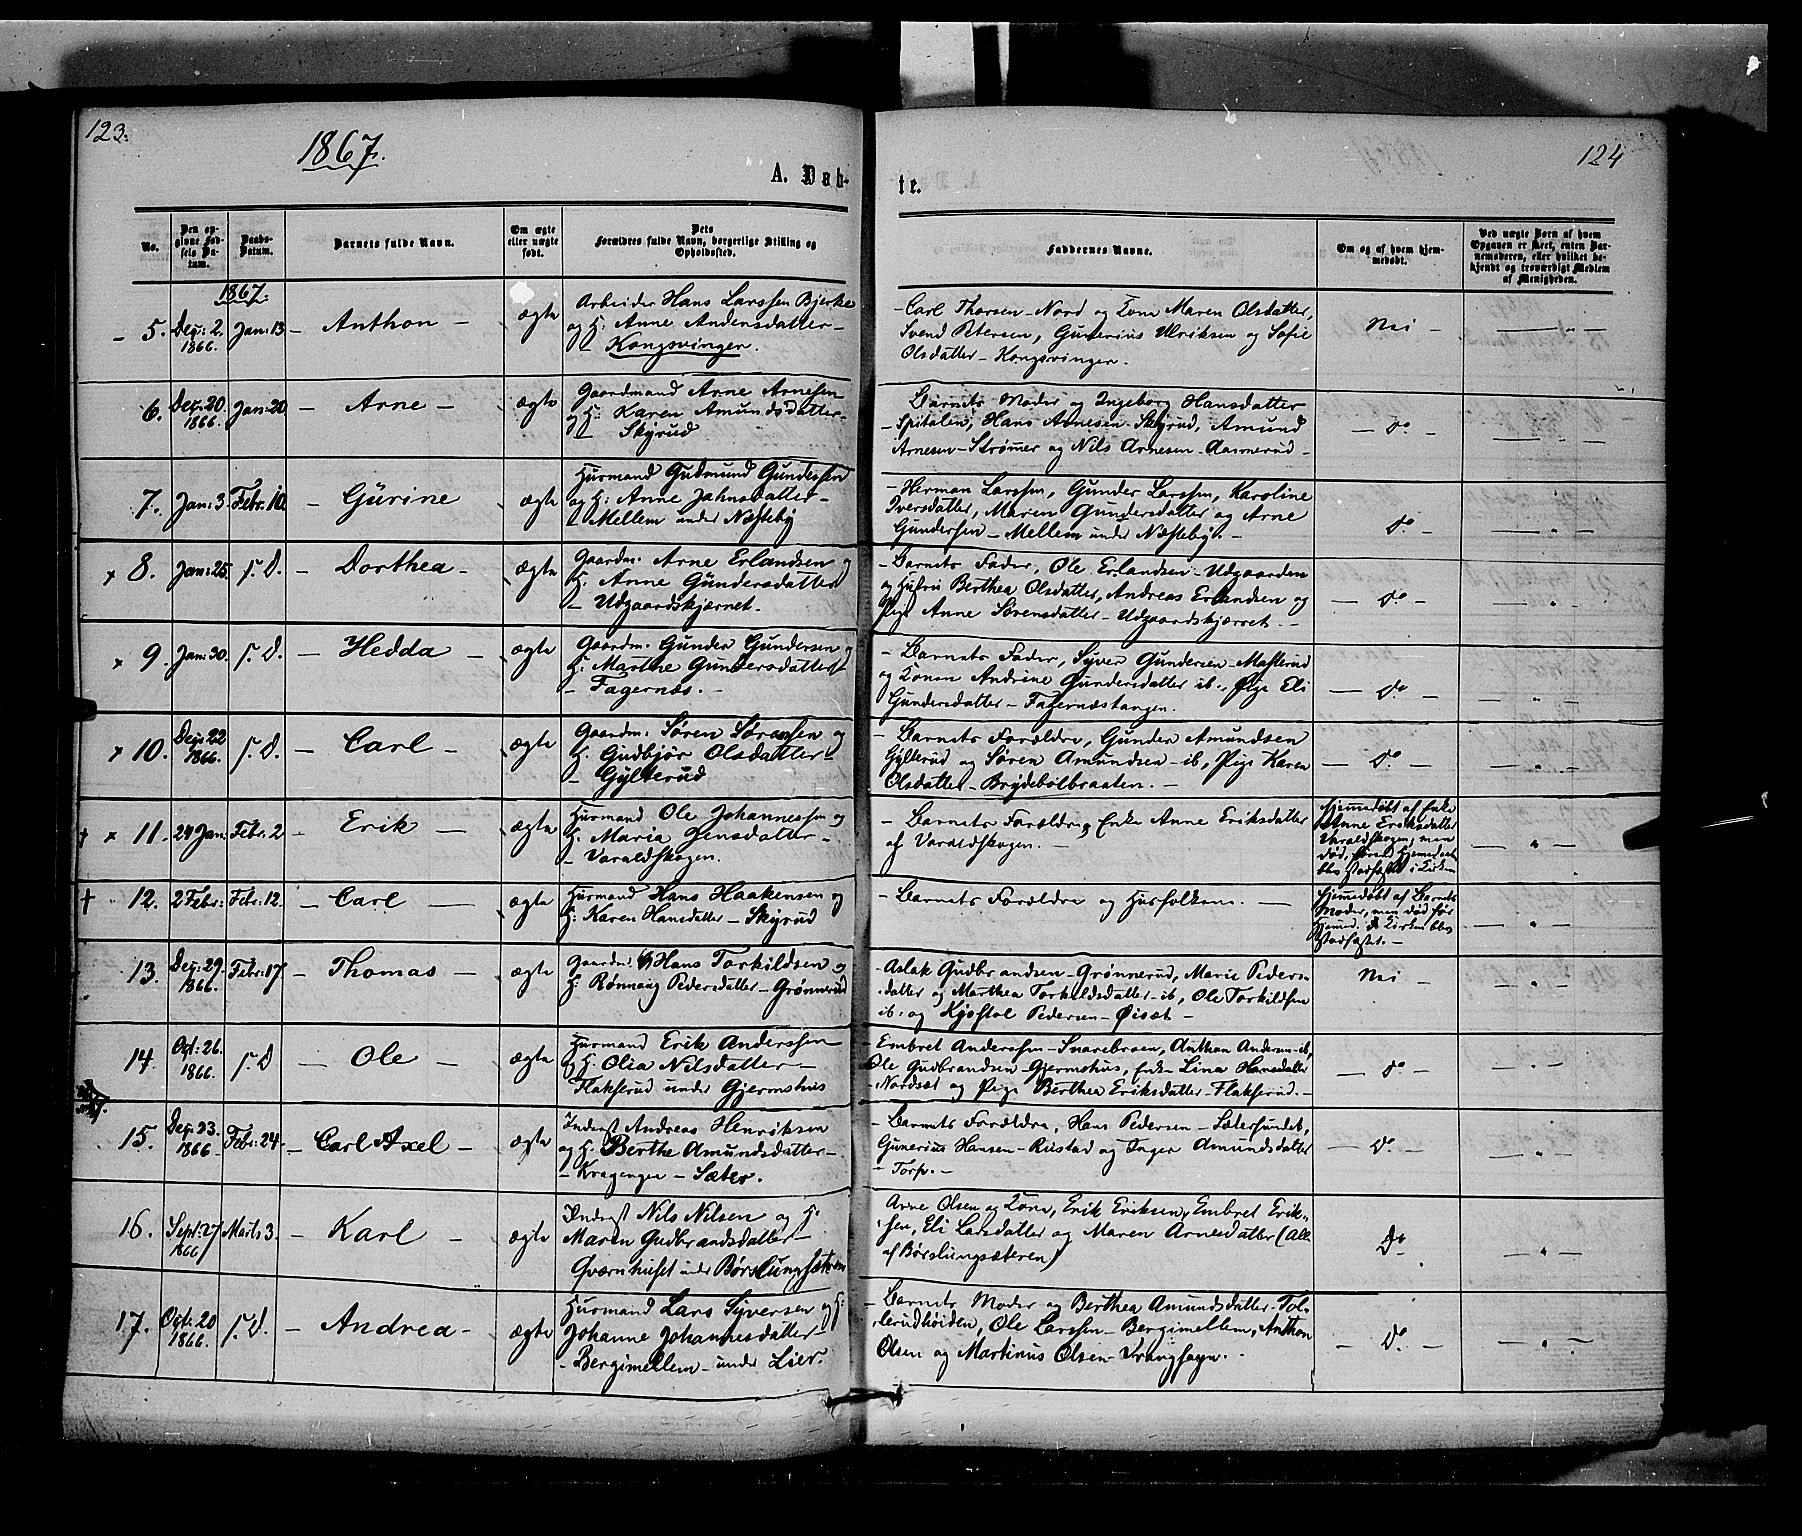 123.
1867.
124
A. Døb-
te.
No.
Den op-
givne Fød-
sels Da-
tum.
Daabs-
Datum.
Barnets fulde Navn.
Om ægte
eller uægte
født.
Dets
Forældres fulde Navn, borgerlige Stilling og
Opholdssted.
Faddernes Navne.
Om og af hvem hjem-
medøbt.
Ved uægte Børn af hvem
Opgaven er skeet, enten Bar-
nemoderen, eller hvilket be-
kjendt og troværdigt Medlem
af Menigheden.
1867.
5. Dec: 2. 1866. Jan: 13 – Anthon – ægte
Arbeider Hans Larssen Bjerke
og H: Anne Andersdatter –
– Kongsvinger.
– Carl Thorsen – Nord og Kone Maren Olsdatter,
Svend Petersen, Gunerius Ulriksen og Sofie
Olsdatter – Kongsvinger.
Nei – "
6. Dec: 20. 1866. Jan: 20 – Arne – ægte
Gaardmand Arne Arnesen
og H: Karen Amundsdatter –
– Skyrud
– Barnets Moder og Ingeborg Hansdatter
– Spitalen, Hans Arnesen – Skyrud, Amund
Arnesen – Strømer og Nils Arnesen – Aamerud –
– do – "
7. Jan: 3. Febr: 10. – Gurine ægte
Husmand Gudmund Gundersen
og H: Anne Johnsdatter –
– Mellem under Næsteby
– Herman Larssen, Gunder Larssen, Karoline
Iversdatter, Maren Gundersdatter og Arne
Gundersen – Mellem under Næsteby. –
do – "
x 8. Jan: 25. s. D. – Dorthea – ægte
Gaardm: Arne Erlandsen og
H: Anne Gundersdatter
– Udgaardskjernet.
– Barnets Fader, Ole Erlandsen – Udgaarden
og Husfru Berthea Olsdatter, Andreas Erlandsen og
Pige Anne Sørensdatter – Udgaardskjærnet. –
– do – "
x 9. Jan: 30. s. D. – Hedda – ægte
Gaardm. Gunder Gundersen og
H: Marthe Gundersdatter
– Fagernæs. –
– Barnets Fader, Syver Gundersen – Masterud
og Konen Andrine Gundersdatter ib., Pige Eli
Gundersdatter – Fagernæstangen.
– do – "
x 10. Dec: 22 1866. s. D. – Carl – ægte
Gaardm: Søren Sørensen og
H: Gudbjør Olsdatter –
– Gylterud
– Barnets Forældre, Gunder Amundsen
Gylterud og Søren Amundsen – ib, Pige Karen
Olsdatter – Brydebølbraaten. –
– do – "
† x 11. 24 Jan: Febr: 2 – Erik – ægte
Husmand Ole Johannessen og
H: Maria Jensdatter –
– Varaldskogen.
– Barnets Forældre, Enke Anne Eriksdatter
af Varaldskogen. –
Hjemmedøbt af Enke
Anne Eriksdatter
Varaldskogen, men
død, førend Hjemmedaab
blev stadfæstet i Kirken
– " –
† 12. 2 Febr: Febr: 12. – Carl – ægte
Husmand Hans Haakensen og
H: Karen Hansdatter – Skyrud
– Barnets Forældre og Husfolkene. –
Hjemmedøbt af Barnets
Moder, men død før
Hjemmed. i Kirken blev
stadfæstet. –
– " –
13. Dec: 29 1866. Febr: 17 – Thomas – ægte
Gaardm: Hans Torkildsen og
H: Rønnaug Pedersdatter – Grønnerud
– Aslak Gudbrandsen – Grønnerud, Marie Peders-
datter og Marthea Torkildsdatter – ib, Ole Torkildsen
ib. og Kjøstol Pedersen – Øiset –
Nei – "
14. Oct: 26. 1866. s. D – Ole ægte
Husmand Erik Anderssen
og H: Olia Nilsdatter –
Flakserud under Gjermshus
– Embret Anderssen – Snarebroen, Anthon Andersen – ib,
Ole Gudbrandsen – Gjermshus, Enke Lina Hansdatter
Nordset og Pige Berthea Eriksdatter – Flakserud. –
– do – "
15. Dec: 23. 1866 Febr: 24 – Carl Axel – ægte
Inderst Andreas Henriksen
og H. Berthe Amundsdatter –
– Kragenger – Sæter.
– Barnets Forældre, Hans Pedersen – Sætersundet,
Gunerius Hansen – Rustad og Inger Amundsdatter
– Torp. –
– do. – "
16. Sept: 27 1866 Marts 3. – Karl – ægte
Inderst Nils Nilsen og H:
Maren Gudbrandsdatter –
Qværnhuset under Børslungsæteren
Arne Olsen og Kone, Erik Eriksen, Embret Erik-
sen, Eli Larsdatter og Maren Arnesdatter (Alle
af Børslungsæteren)
do – "
17. Oct: 20 1866. s. D. – Andrea – ægte
Husmand Lars Syversen og H:
Johanne Johannesdatter –
– Bergimellem – under Lier.
– Barnets Moder og Berthea Amundsdatter – Tol-
lerudhøiden, Ole Larssen – Bergimellem, Anthon
Olsen og Martinus Olsen – Vrangsagn. –
– do – "